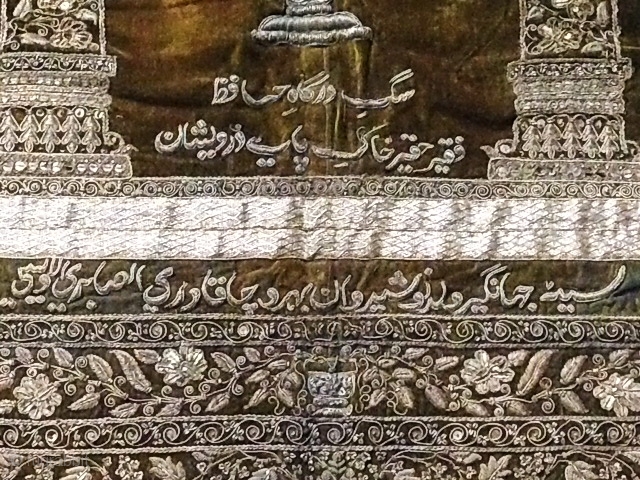 سگِ درگاہِ حافظ
فقیر حقیر خاکِ پاے درویشان
سیٹھ جہانگیر ولد نوشیروان بہروچا قادري الصابري الاویسي